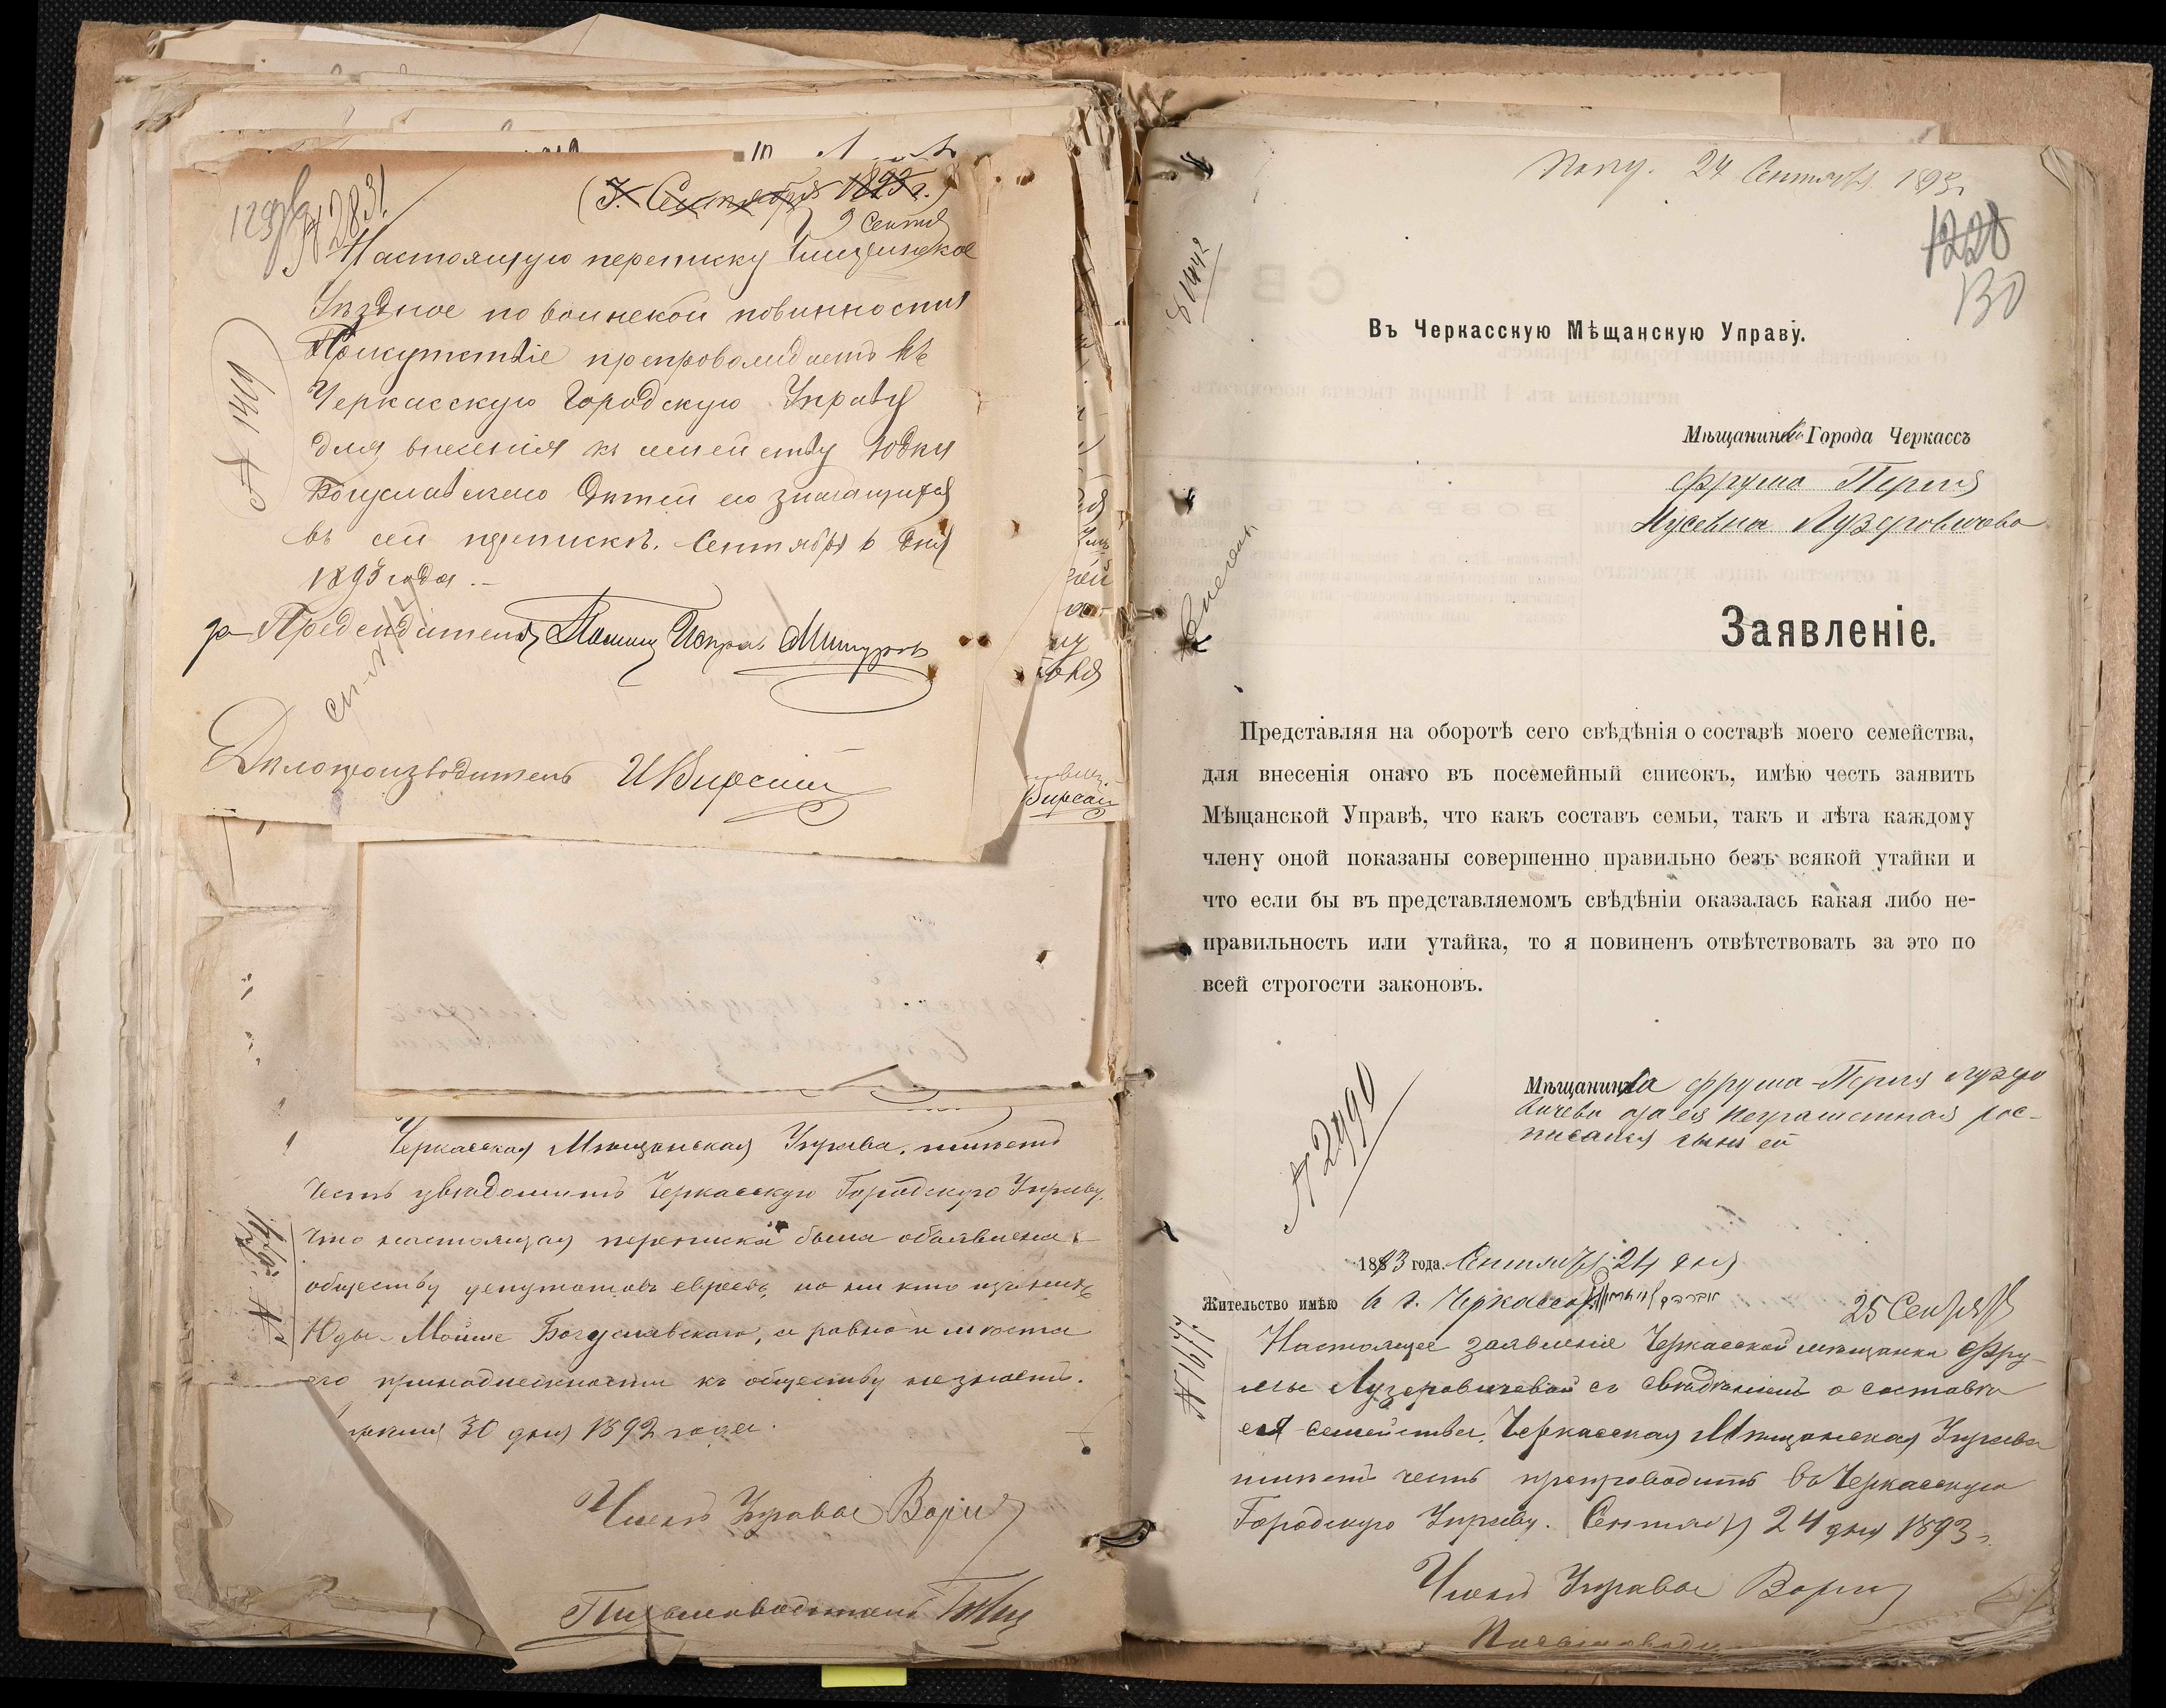 № 2831
(3. Сентября 1893 г.)
9 Сентя
Настоящую переписку Чигиринское
Уѣздное по воинской повинности
Присутствіе препровождаетъ въ
Черкасскую Городскую Управу
для внесенія къ семейству Юдки
Богуславскаго дѣтей его значащихся
въ сей перепискѣ. Сентября 6 дня
1893 года.
№ 1419
за Предсѣдателя Помощ Исправ
Дѣлопроизводитель
Черкасская Мѣщанская Управа, имѣетъ
честь увѣдомить Черкасскую Городскую Управу,
что настоящая переписка была объявлена
обществу депутатовъ евреевъ, но ни кто изъ нихъ
Юды-Мойше Богуславскаго, а равно и мѣста
его принадлежности къ обществу не знаетъ.
30 дня 1892 года.
Членъ Управы
Письмоводитель
Полу. 24 Сентября 1893 г.
1228
130
Въ Черкасскую Мѣщанскую Управу.
Мѣщанинка Города Черкассъ
Фрума Перля
Мусевна Лузеровичева
Заявленіе.
Представляя на оборотѣ сего свѣдѣнія о составѣ моего семейства,
для внесенія онаго въ посемейный списокъ, имѣю честь заявить
Мѣщанской Управѣ, что какъ составъ семьи, такъ и лѣта каждому
члену оной показаны совершенно правильно безъ всякой утайки и
что если бы въ представляемомъ свѣдѣніи оказалась какая либо не-
правильность или утайка, то я повиненъ отвѣтствовать за это по
всей строгости законовъ.
Мѣщанинка Фрума-Перля Лузеро
вичева за ея неграмотная рос-
писался сынъ ей
№ 2990
1893 года. Сентября 24 дня
Жительство имѣю въ г. Черкассахъ
25 Сентября
№ 1677
Настоящее заявленіе Черкасской мѣщанки Фру-
мы Лузеровичевой съ свѣдѣніемъ о составѣ
ея семейства, Черкасская Мѣщанская Управа
имѣетъ честь препроводить въ Черкасскую
Городскую Управу. Сентября 24 дня 1893 г.
Членъ Управы
Письмоводи